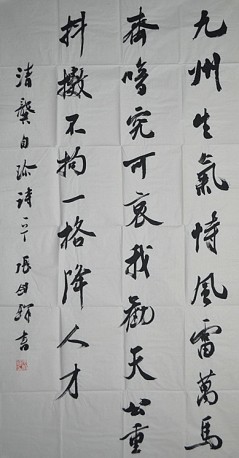 九州生氣恃風雷萬馬
齊喑究可哀我勸天公重
抖擻不拘一格降人才
清龔自珍詩一 張 書